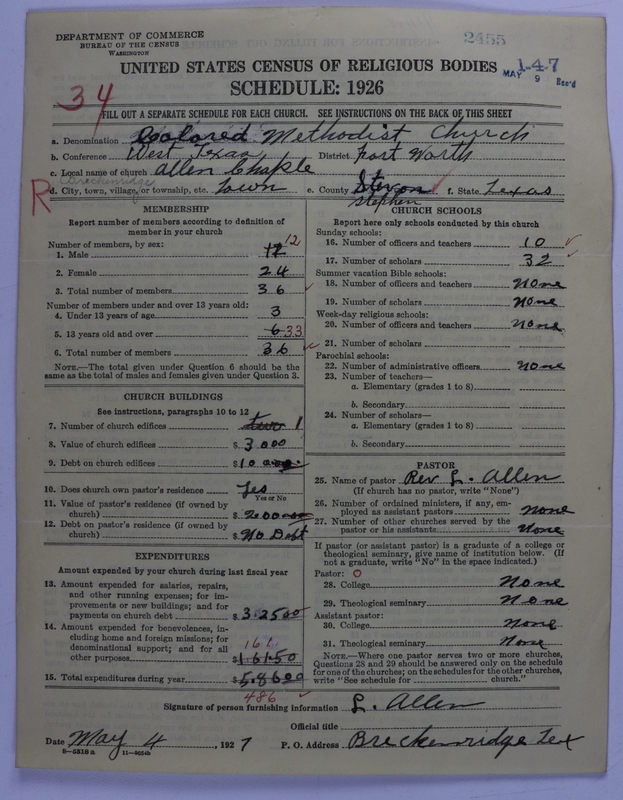 DEPARTMENT OF COMMERCE
BUREAU OF THE CENSUS
WASHINGTON
2455
1-4-7
MAY 9 Rec'd
UNITED STATES CENSUS OF RELIGIOUS BODIES
SCHEDULE: 1926
34
FILL OUT A SEPARATE SCHEDULE FOR EACH CHURCH. SEE INSTRUCTIONS ON THE BACK OF THIS SHEET
a. Denomination Colored Methodist Church
b. Conference West Texas District Fort Worth
c. Local name of church Allen Chaple
Breckenridge
d. City, town, village, or township, etc. Town e. County Stevon f. State Texas
Stephen
R
MEMBERSHIP
Report number of members according to definition of
member in your church
Number of members, by sex:
1. Male 12 12
2. Female 24
3. Total number of members 36
Number of members under and over 13 years old:
4. Under 13 years of age 3
5. 13 years old and over 6 33
6. Total number of members 36
NOTE.—The total given under Question 6 should be the
same as the total of males and females given under Question 3.
CHURCH BUILDINGS
See instructions, paragraphs 10 to 12
7. Number of church edifices two 1
8. Value of church edifices $ 3000
9. Debt on church edifices $ 10
10. Does church own pastor's residence Yes
Yes or No
11. Value of pastor's residence (if owned by
church) $ 200
12. Debt on pastor's residence (if owned by
church) $ No Debt
EXPENDITURES
Amount expended by your church during last fiscal year
13. Amount expended for salaries, repairs,
and other running expenses; for im-
provements or new buildings; and for
payments on church debt $ 32500
14. Amount expended for benevolences, in-
cluding home and foreign missions; for
denominational support; and for all
other purposes $ 16150
15. Total expenditures during year $ 58600
486
CHURCH SCHOOLS
Report here only schools conducted by this church
Sunday schools:
16. Number of officers and teachers 10
17. Number of scholars 32
Summer vacation Bible schools:
18. Number of officers and teachers None
19. Number of scholars None
Week-day religious schools:
20. Number of officers and teachers None
21. Number of scholars
Parochial schools:
22. Number of administrative officers None
23. Number of teachers—
a. Elementary (grades 1 to 8)
b. Secondary
24. Number of scholars—
a. Elementary (grades 1 to 8)
b. Secondary
PASTOR
25. Name of pastor Rev L. Allen
(If church has no pastor, write "None")
26. Number of ordained ministers, if any, em-
ployed as assistant pastors None
27. Number of other churches served by the
pastor or his assistants None
If pastor (or assistant pastor) is a graduate of a college or
theological seminary, give name of institution below. (If
not a graduate, write "No" in the space indicated.)
Pastor: O
28. College None
29. Theological seminary None
Assistant pastor:
30. College None
31. Theological seminary None
NOTE.—Where one pastor serves two or more churches,
Questions 28 and 29 should be answered only on the schedule
for one of the churches; on the schedules for the other churches,
write "See schedule for church."
Signature of person furnishing information L. Allen
Official title
Date May 4, 1927 P. O. Address Breckenridge Tex
8—5318a 11—9054b